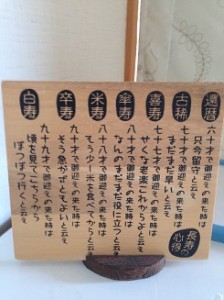 還暦
六十才で御迎えの来た時は
只今留守と云え
古稀
七十才で御迎えの来た時は
まだまだ早いと云え
喜寿
七十七才で御迎えの来た時は
せくな老楽これからよと云え
傘寿
八十才で御迎えの来た時は
なんのまだまだ役に立つと云え
米寿
八十八才で御迎えの来た時は
もう少し米を食べてからと云え
卒寿
九十才で御迎えの来た時は
そう急がずともよいと云え
白寿
九十九才で御迎えの来た時は
頃を見てこちらから
ぼつぼつ行くと云え
長寿の
心得